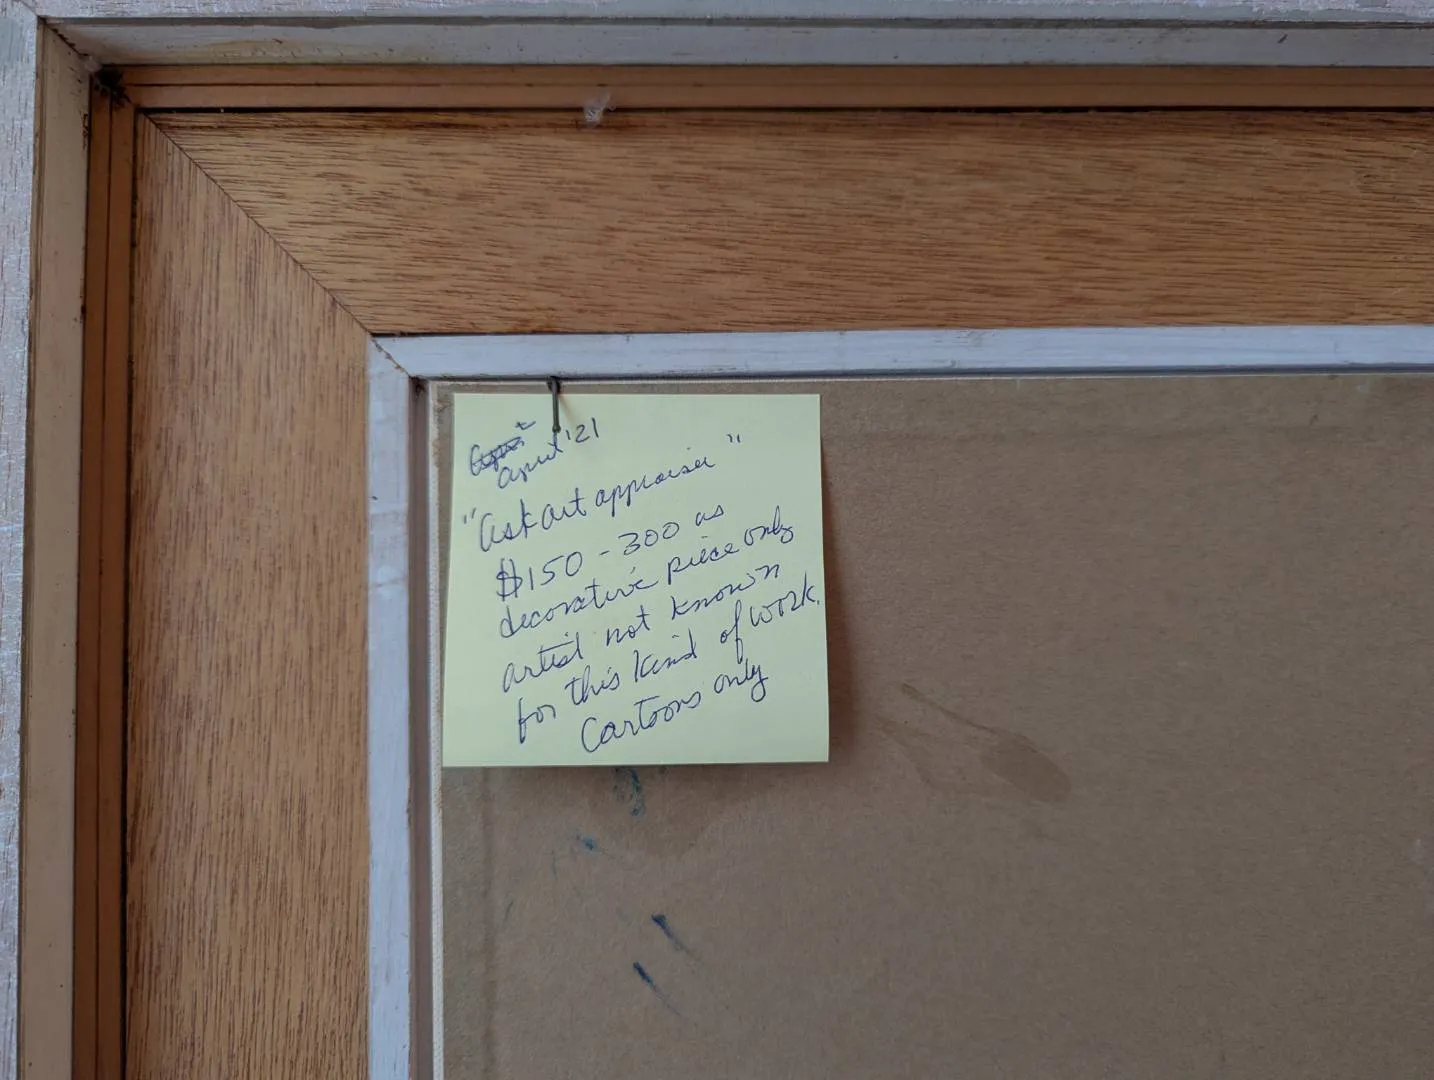 april '21
"Askart appraiser"
$150 - 300 as
decorative piece only
artist not known
for this kind of work.
Cartoons only